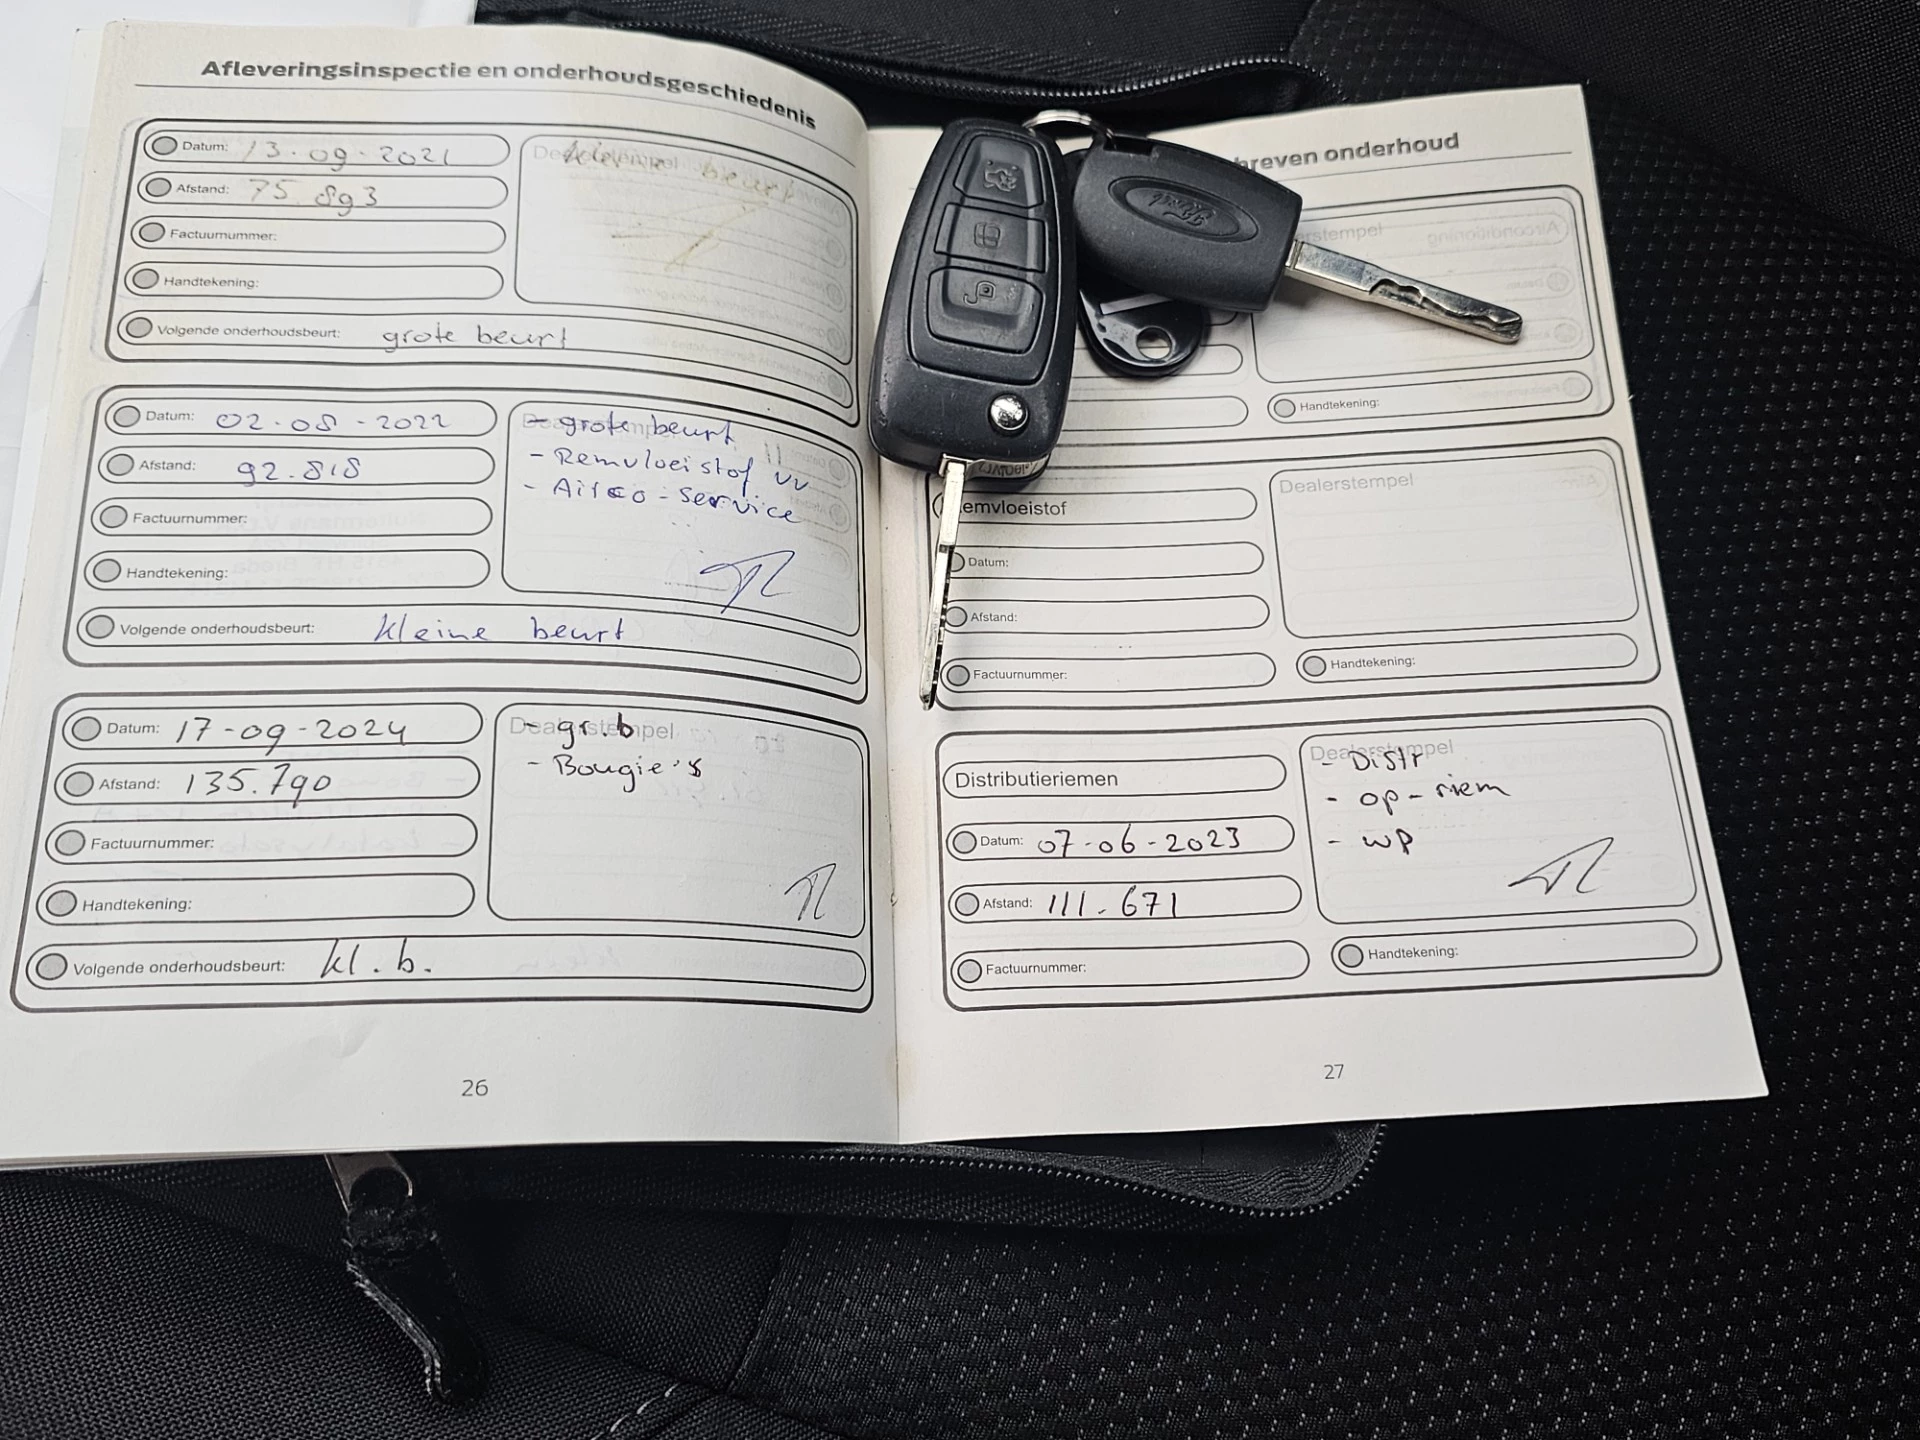 Afleveringsinspectie en onderhoudsgeschiedenis
Datum: 13-09-2021
Dealerstempel
kleine beurt
Afstand: 75.893
Factuurnummer:
Handtekening:
Volgende onderhoudsbeurt: grote beurt
Datum: 02-08-2022
- grote beurt
Afstand: 92.818
- Remvloeistof vv
- Airco-service
Factuurnummer:
Handtekening:
Volgende onderhoudsbeurt: kleine beurt
Datum: 17-09-2024
Dealerstempel
- gr.b
Afstand: 135.790
- Bougie's
Factuurnummer:
Handtekening:
Volgende onderhoudsbeurt: kl.b.
26
hreven onderhoud
Ford
rstempel
Handtekening:
emvloeistof
Dealerstempel
Datum:
Afstand:
Factuurnummer:
Handtekening:
Distributieriemen
Dealerstempel
- Distr
- op-riem
Datum: 07-06-2023
- wp
Afstand: 111.671
Factuurnummer:
Handtekening:
27